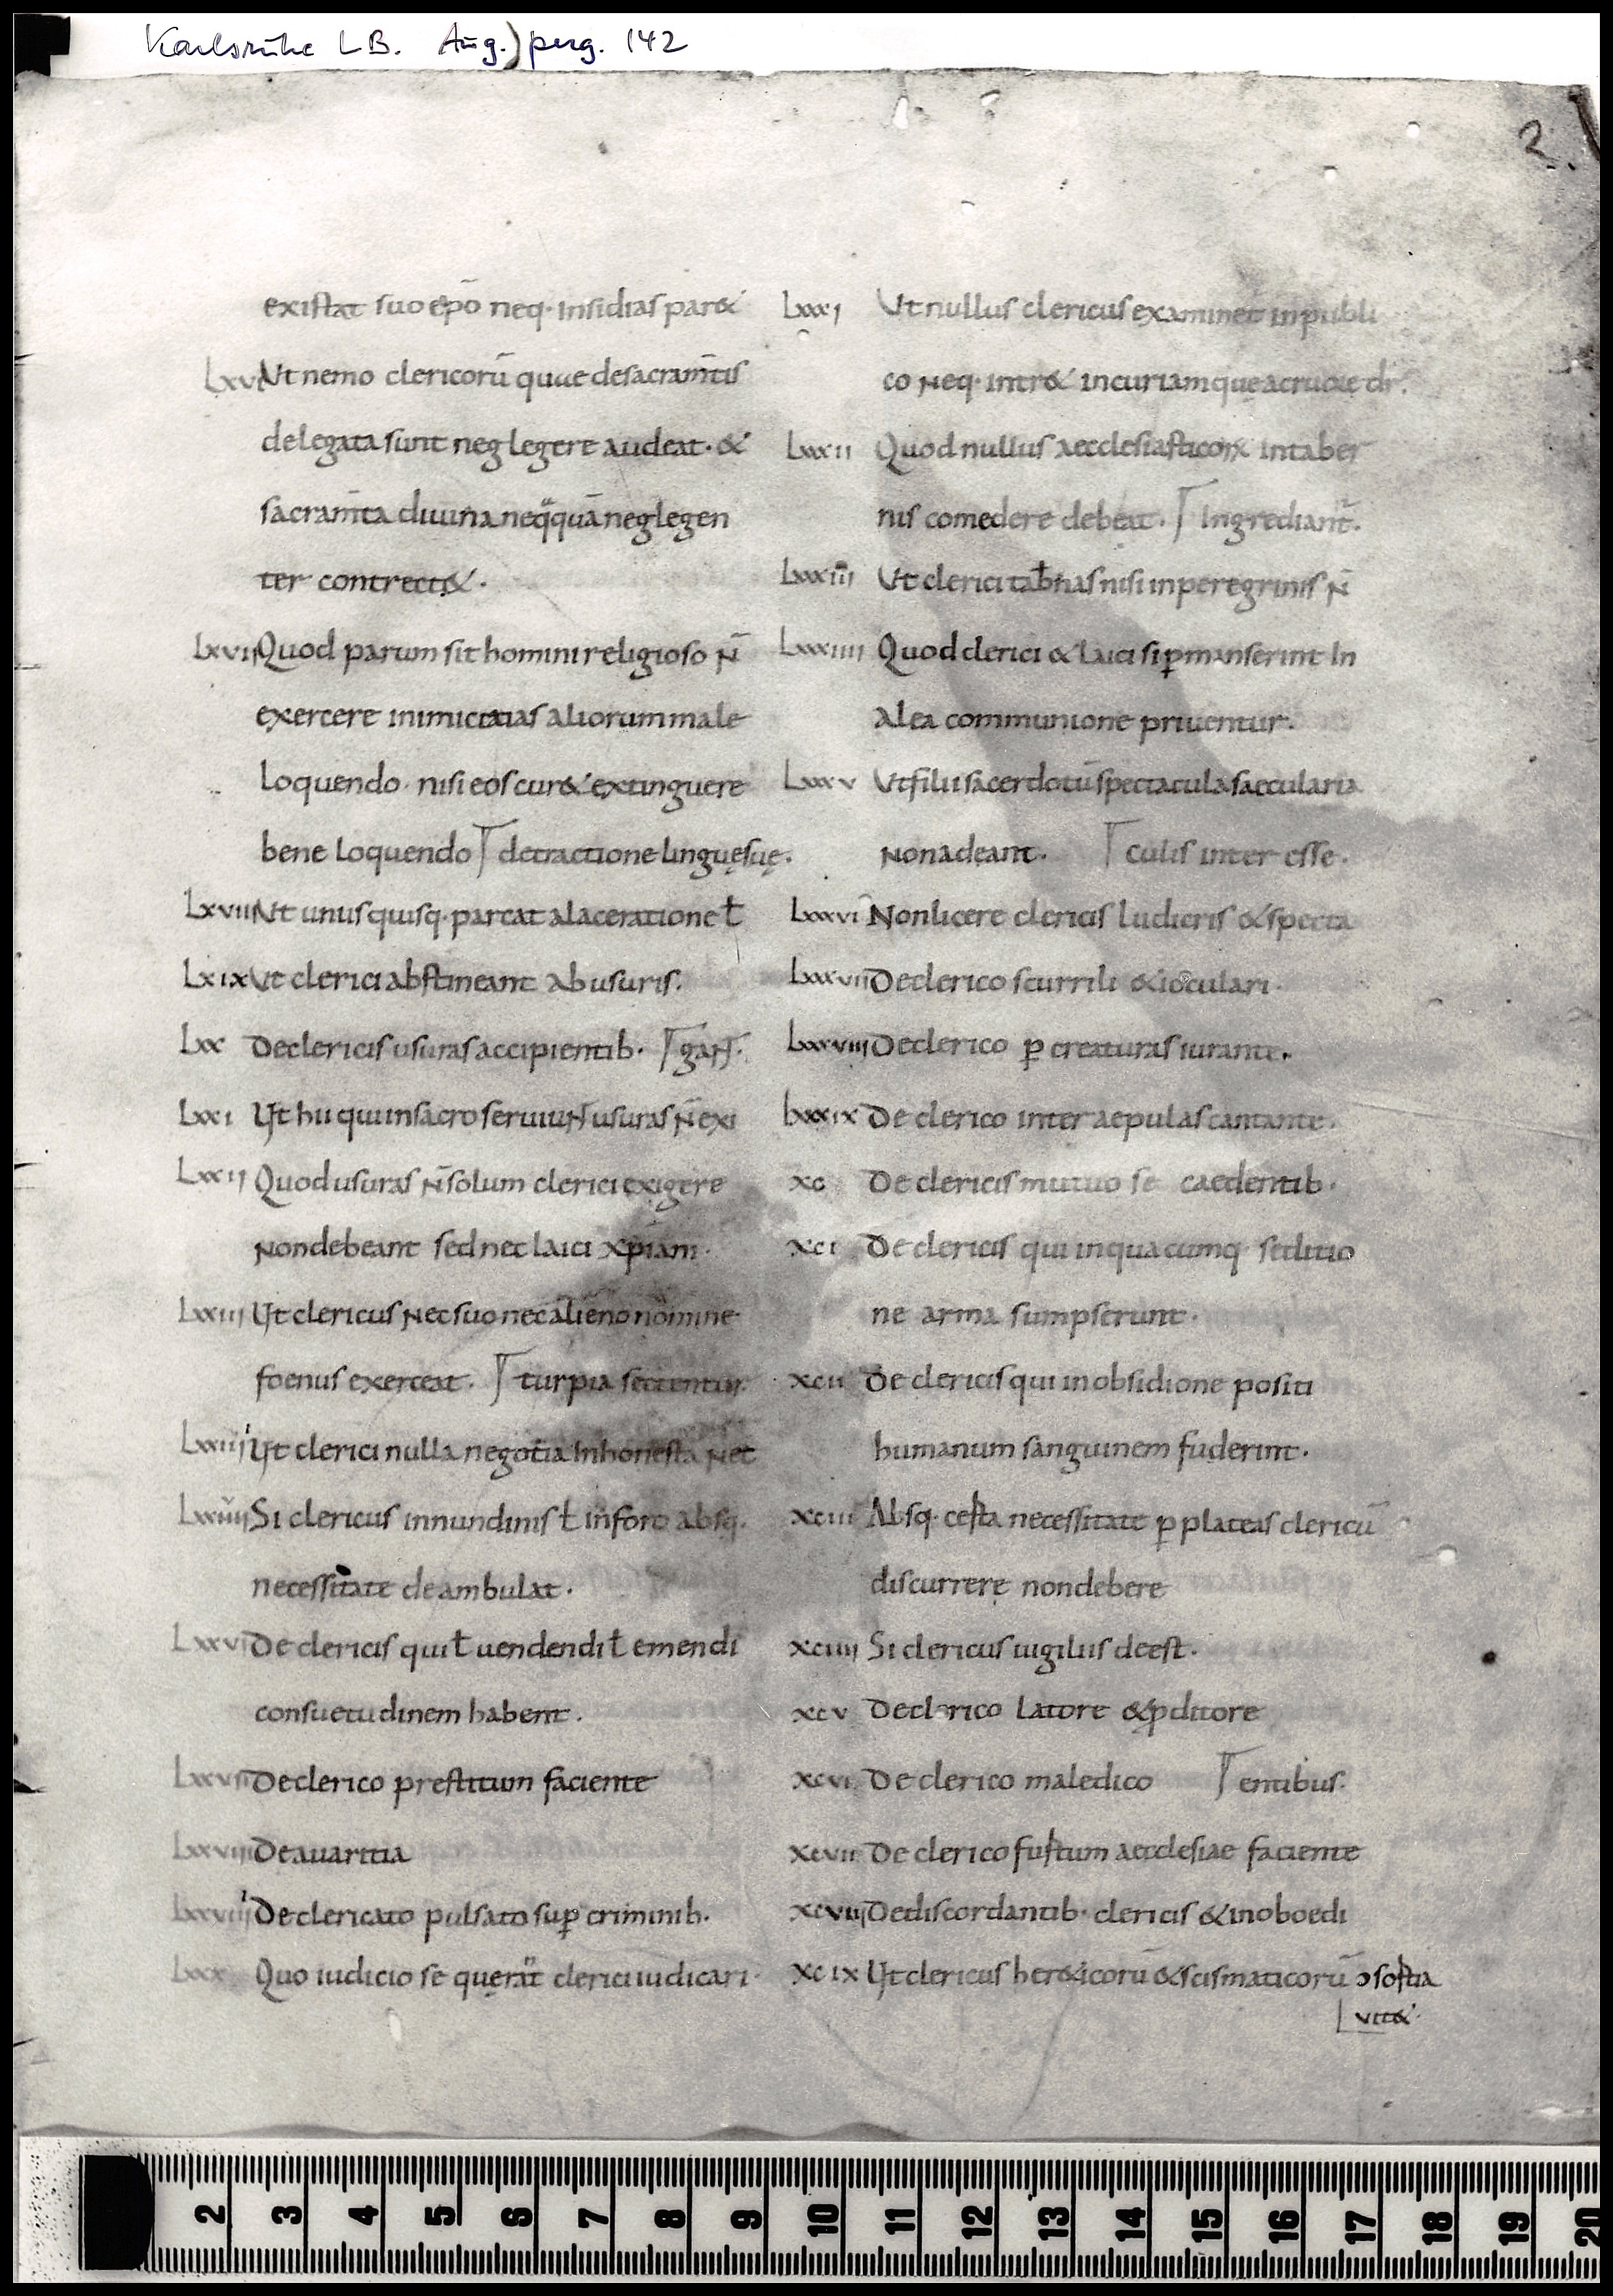 Karlsruhe LB. Aug. perg. 142
2.
existat suo ep̄o neq· insidias par&
Lxvi Ut nemo clericorū quae de sacram̄tis
delegata sunt neglegere audeat· &
sacram̄ta diuina neq̈quā neglegen
ter contrect&·
Lxvii Quod parum sit homini religioso N̄
exercere inimicitias aliorum male
loquendo· nisi eos cur& extinguere
bene loquendo ⌈ detractione linguę suę.
Lxviii Ut unusquisq· parcat a laceratione ł
Lxix Ut clerici abstineant ab usuris.
Lxx De clericis usuras accipientib· ⌈ gant.
Lxxi Ut hii qui in sacro seruiunt usuras N̄ exi
Lxxii Quod usuras N̄ solum clerici exigere
non debeant sed nec laici xp̄iani·
Lxxiii Ut clericus nec suo nec alieno nomine
foenus exerceat. ⌈ turpia sectentur.
Lxxiiii Ut clerici nulla negotia inhonesta nec
Lxxiiiii Si clericus in nundinis ł in foro absq.
necessitate deambulat.
Lxxvi De clericis qui ł uendendi ł emendi
consuetudinem habent.
Lxxvii De clerico prestitum faciente
Lxxviii De auaritia
Lxxviiii De clericato pulsato sup̱ criminib.
Lxxx Quo iudicio se querāt clerici iudicari·
Lxxxi Ut nullus clericus examinet in publi
co neq· intr& in curiam que a cruore dr̄.
Lxxxii Quod nullus aecclesiasticoꝝ in taber
nis comedere debeat. ⌈ Ingrediant̄.
Lxxxiii Ut clerici tab̄nas nisi in peregrinis N̄
Lxxxiiii Quod clerici & laici si p̱manserint in
alea communione priuentur.
Lxxxv Ut filii sacerdotū spectacula saecularia
non adeant. ⌈ culis inter esse.
Lxxxvi Non licere clericis ludicris & specta
Lxxxvii De clerico scurrili & ioculari·
Lxxxviii De clerico p̱ creaturas iurante.
Lxxxix De clerico inter aepulas cantante.
xc De clericis mutuo se caedentib·
xci De clericis qui in quacumq· seditio
ne arma sumpserunt·
xcii De clericis qui in obsidione positi
humanum sanguinem fuderint·
xciii Absq· certa necessitate p̱ plateas clericū
discurrere non debere
xciiii Si clericus uigiliis deest.
xcv De clerico latore & p̱ditore
xcvi De clerico maledico ⌈ entibus.
xcvii De clerico furtum aecclesiae faciente
xcviii De discordantib· clericis & inoboedi
xcix Ut clericus her&icorū & scismaticorū ↄsortia
⌊ uit&·
2 3 4 5 6 7 8 9 10 11 12 13 14 15 16 17 18 19 20